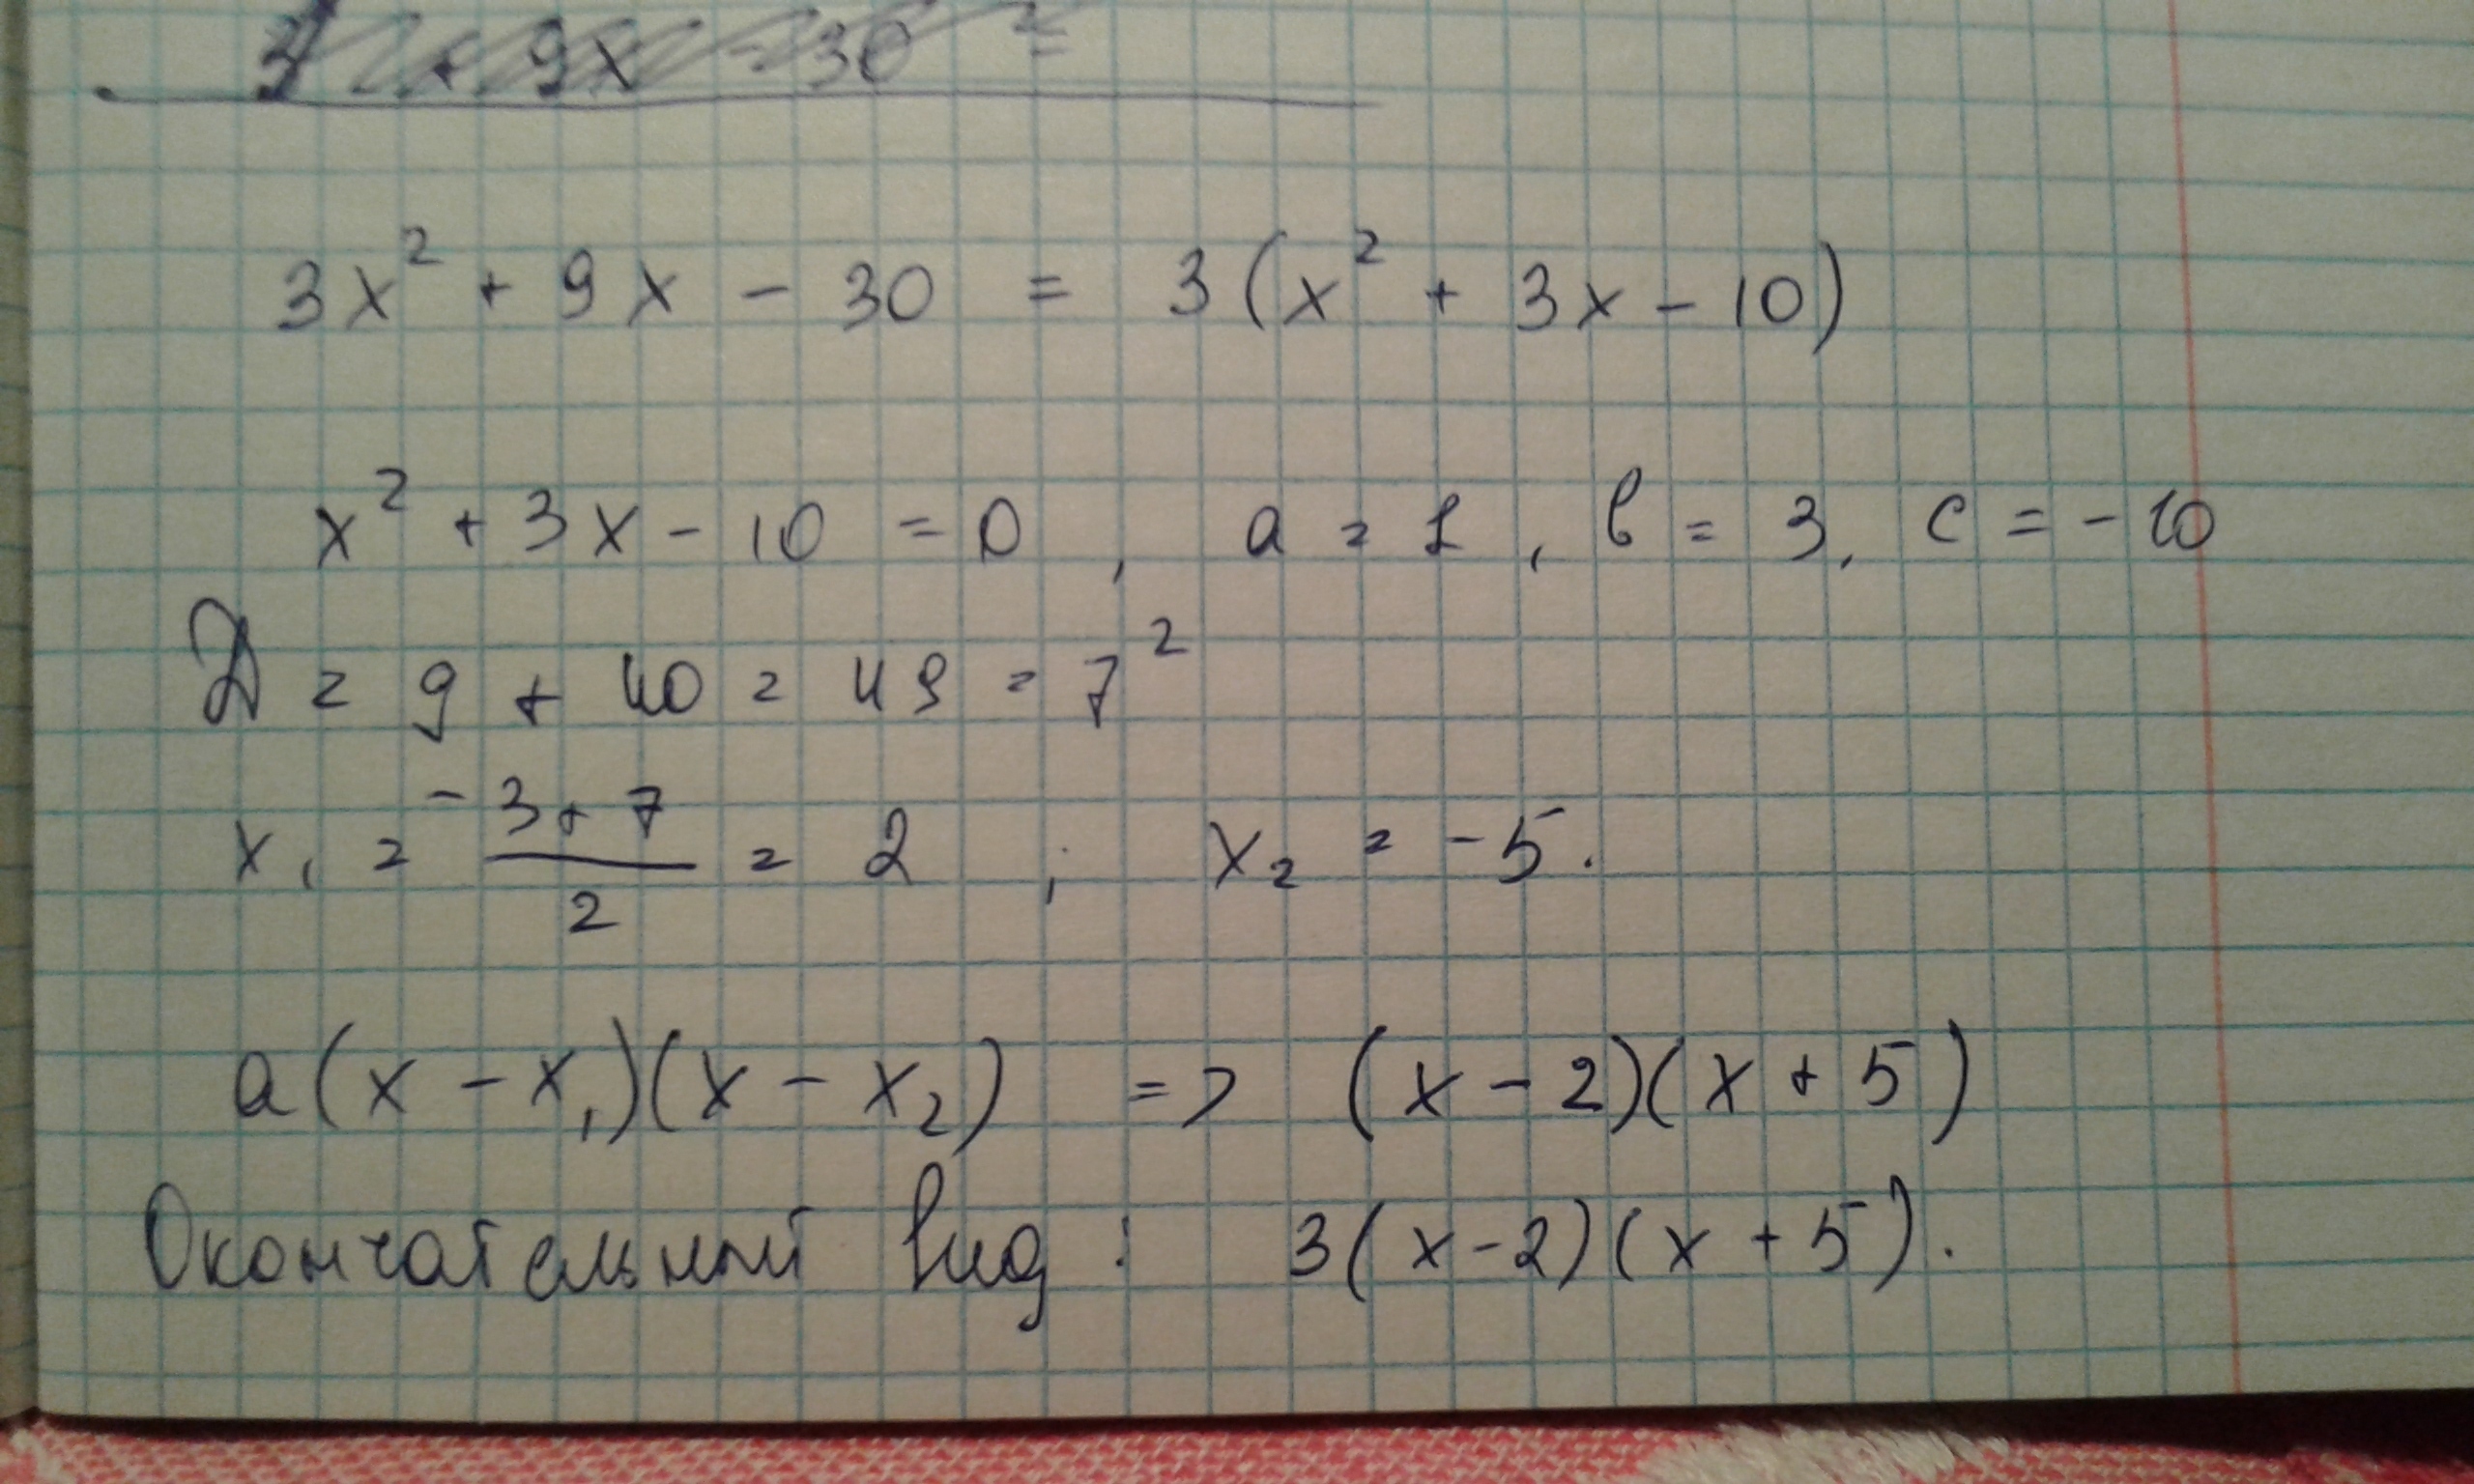 + 9x - 30 =
3x² + 9x - 30 = 3(x² + 3x - 10)
x² + 3x - 10 = 0, a = 1, в = 3, c = -10
Д = 9 + 40 = 49 = 7²
x₁ = (-3+7)/2 = 2 ; x₂ = -5.
a(x - x₁)(x - x₂) => (x - 2)(x + 5)
Окончательный вид: 3(x-2)(x+5).